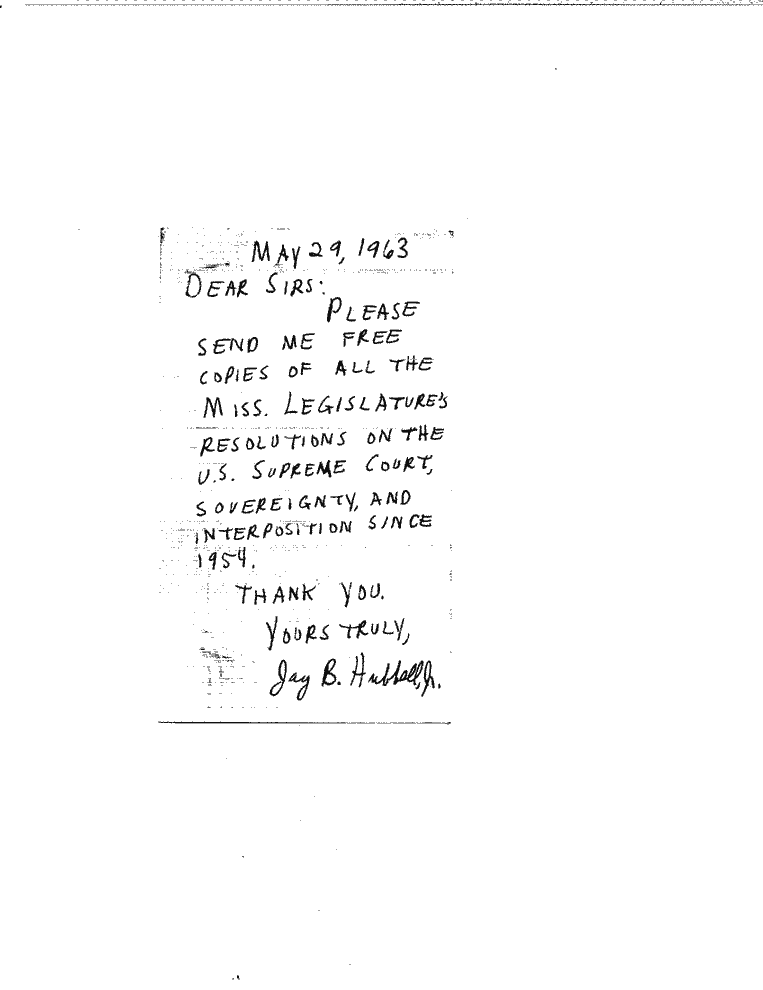 MAY 29, 1963
DEAR SIRS:
PLEASE
SEND ME FREE
COPIES OF ALL THE
MISS. LEGISLATURE'S
RESOLUTIONS ON THE
U.S. SUPREME COURT,
SOVEREIGNTY, AND
INTERPOSITION SINCE
1954.
THANK YOU.
YOURS TRULY,
Jay B. Hubbell, Jr.